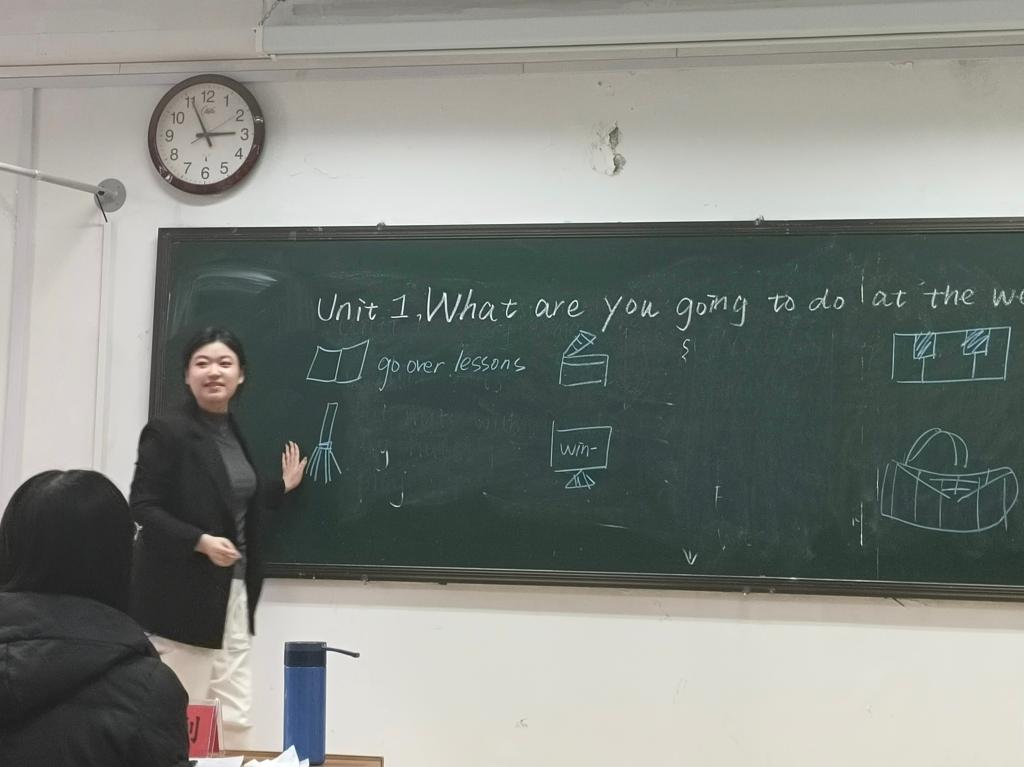 12 1 2 3 4 5 6 7 8 9 10 11
Unit 1, What are you going to do at the we
go over lessons
win-